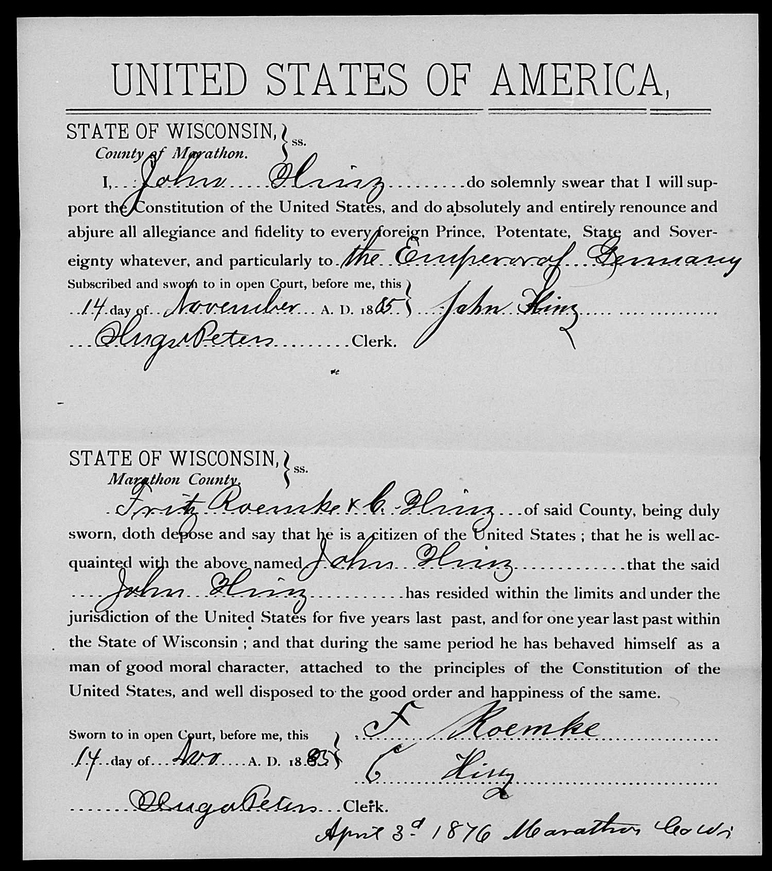 UNITED STATES OF AMERICA,
STATE OF WISCONSIN, } ss.
County of Marathon.
I, John Hinz do solemnly swear that I will sup-
port the Constitution of the United States, and do absolutely and entirely renounce and
abjure all allegiance and fidelity to every foreign Prince, Potentate, State and Sover-
eignty whatever, and particularly to the Emperor of Germany
Subscribed and sworn to in open Court, before me, this
14 day of November A. D. 1885 } John Hinz
Hugo Peters Clerk.
STATE OF WISCONSIN, } ss.
Marathon County.
Fritz Roemke & C. Hinz of said County, being duly
sworn, doth depose and say that he is a citizen of the United States ; that he is well ac-
quainted with the above named John Hinz that the said
John Hinz has resided within the limits and under the
jurisdiction of the United States for five years last past, and for one year last past within
the State of Wisconsin ; and that during the same period he has behaved himself as a
man of good moral character, attached to the principles of the Constitution of the
United States, and well disposed to the good order and happiness of the same.
Sworn to in open Court, before me, this } F Roemke
14 day of Nov A. D. 18
C Hinz
Hugo Peters Clerk.
April 3d 1876 Marathon Co Wi